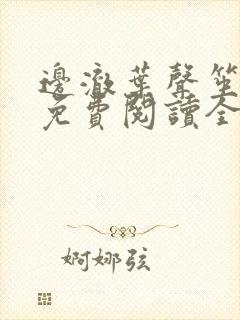 邊澈葉聲笙
免費閱讀全
婀娜弦